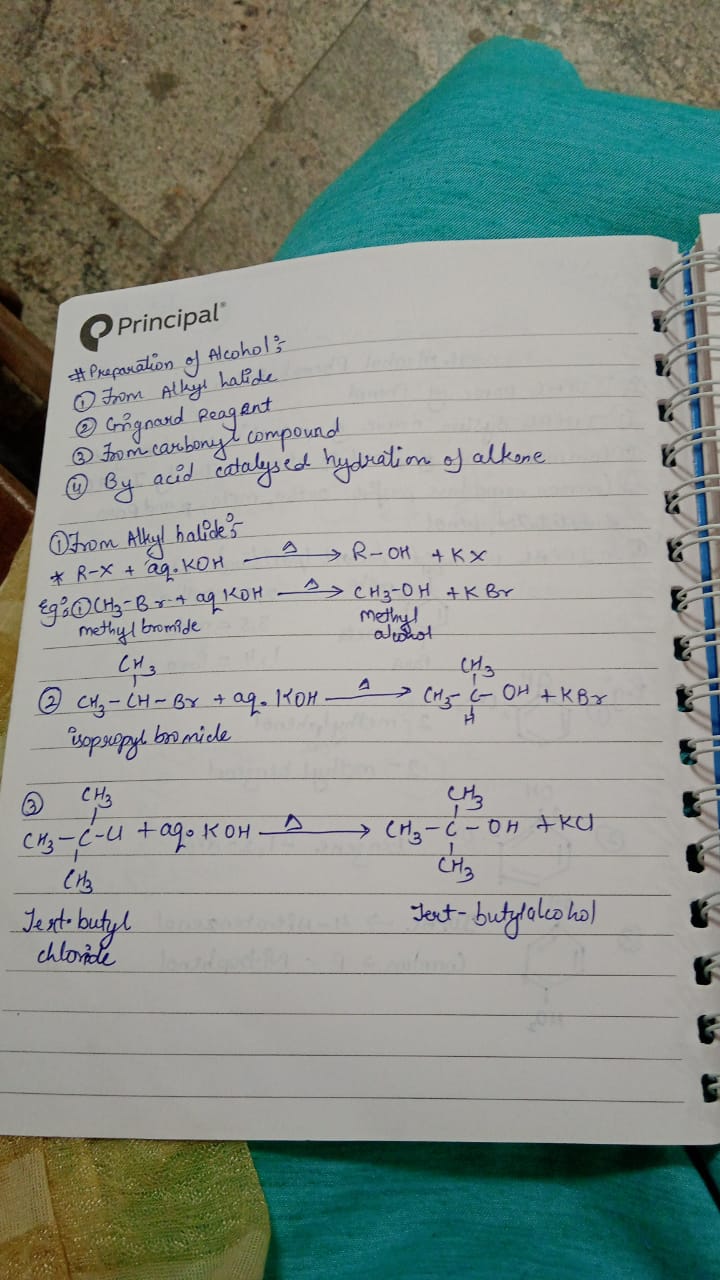 Principal®
# Preparation of Alcohol:-
① From Alkyl halide
② Grignard Reagent
③ From carbonyl compound
④ By acid catalysed hydration of alkene
① From Alkyl halide:-
* R-X + aq. KOH —Δ→ R-OH + KX
Eg:① CH3-Br + aq KOH —Δ→ CH3-OH + KBr
methyl bromide methyl
alcohol
CH3 CH3
② CH3-CH-Br + aq. KOH —Δ→ CH3-C-OH + KBr
H
isopropyl bromide
③ CH3 CH3
CH3-C-Cl + aq. KOH —Δ→ CH3-C-OH + KCl
CH3 CH3
Tert-butyl Tert-butylalcohol
chloride